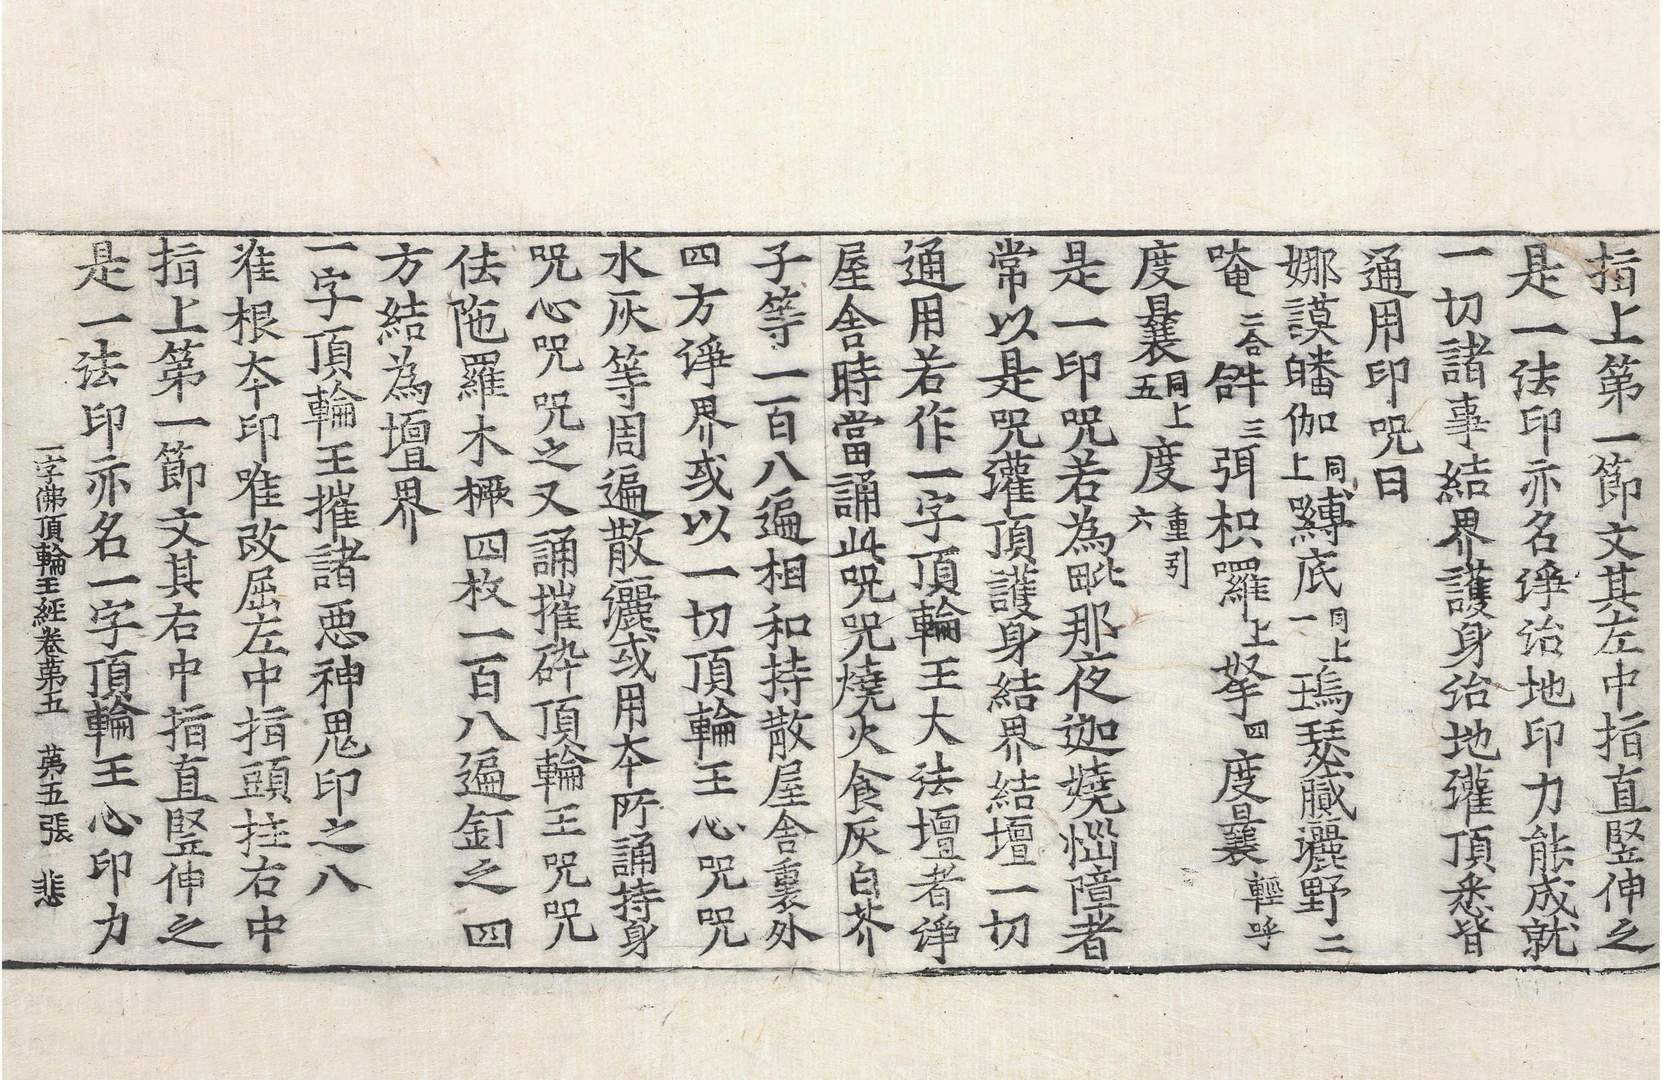 指上第一節文其左中指直豎伸之
是一法印亦名淨治地印力能成就
一切諸事結界護身治地灌頂悉皆
通用印呪曰
娜謨皤伽上同縛底一同上瑦瑟膩灑野二
唵二合𤙖三弭枳囉上拏四度曩輕呼
度曩五同上度六重引
是一印呪若為毗那夜迦嬈惱障者
常以是呪灌頂護身結界結壇一切
通用若作一字頂輪王大法壇者淨
屋舍時當誦此呪呪燒火食灰白芥
子等一百八遍相和持散屋舍裏外
四方淨界或以一切頂輪王心呪呪
水灰等周遍散灑或用本所誦持身
呪心呪呪之又誦摧碎頂輪王呪呪
佉陁羅木橛四枚一百八遍釘之四
方結為壇界
一字頂輪王摧諸惡神鬼印之八
准根本印唯改屈左中指頭拄右中
指上第一節文其右中指直豎伸之
是一法印亦名一字頂輪王心印力
一字佛頂輪王經卷第五 第五張 悲